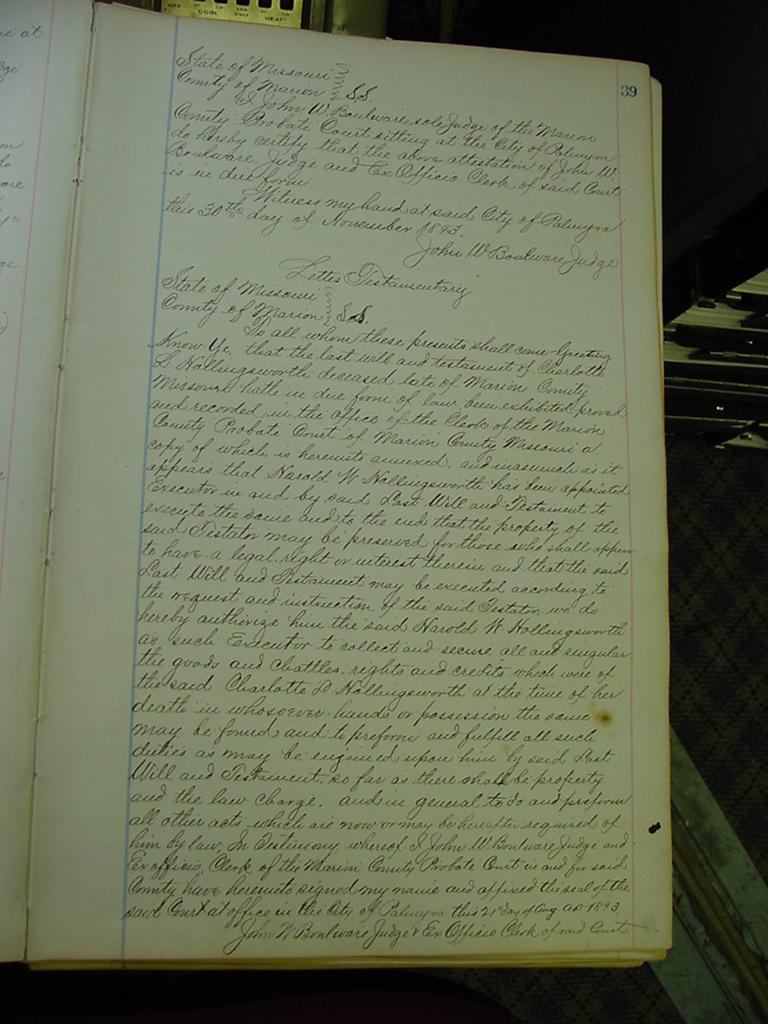 39
State of Missouri
County of Marion } S.S.
I John W. Boulware sole Judge of the Marion
County Probate Court sitting at the City of Palmyra
do hereby certify that the above attestation of John W.
Boulware, Judge and Ex Officio Clerk of said Court
is in due form
Witness my hand at said City of Palmyra
this 30th day of November 1893.
John W Boulware Judge
Letters Testamentary
State of Missouri
County of Marion } S.S.
To all whom these presents shall come Greeting
Know Ye, that the last will and testament of Charlotte
D Hollingsworth deceased late of Marion County
Missouri hath in due form of law been exhibited proved
and recorded in the office of the Clerk of the Marion
County Probate Court of Marion County Missouri a
copy of which is hereunto annexed, and inasmuch as it
appears that Harold W Hollingsworth has been appointed
Executor in and by said Last Will and Testament to
execute the same and to the end that the property of the
said Testator may be preserved for those who shall appear
to have a legal right or interest therein and that the said
Last Will and Testament may be executed according to
the request and instruction of the said Testator, we do
hereby authorize him the said Harold W. Hollingsworth
as such Executor to collect and secure all and singular
the goods and chattles, rights and credits which were of
the said Charlotte D. Hollingsworth at the time of her
death in whosoever hands or possession the same
may be found and to preform and fulfill all such
duties as may be enjoined upon him by said Last
Will and Testament, so far as there shall be property
and the law charge, and in general to do and preform
all other acts which are now or may be hereafter required of
him by law, In Testimony whereof I John W. Boulware Judge and
Ex officio Clerk of the Marion County Probate Court in and for said
County have hereunto signed my name and affixed the seal of the
said Court at office in the City of Palmyra this 21 day of Aug AD 1893
John W Boulware Judge & Ex Officio Clerk of said Court